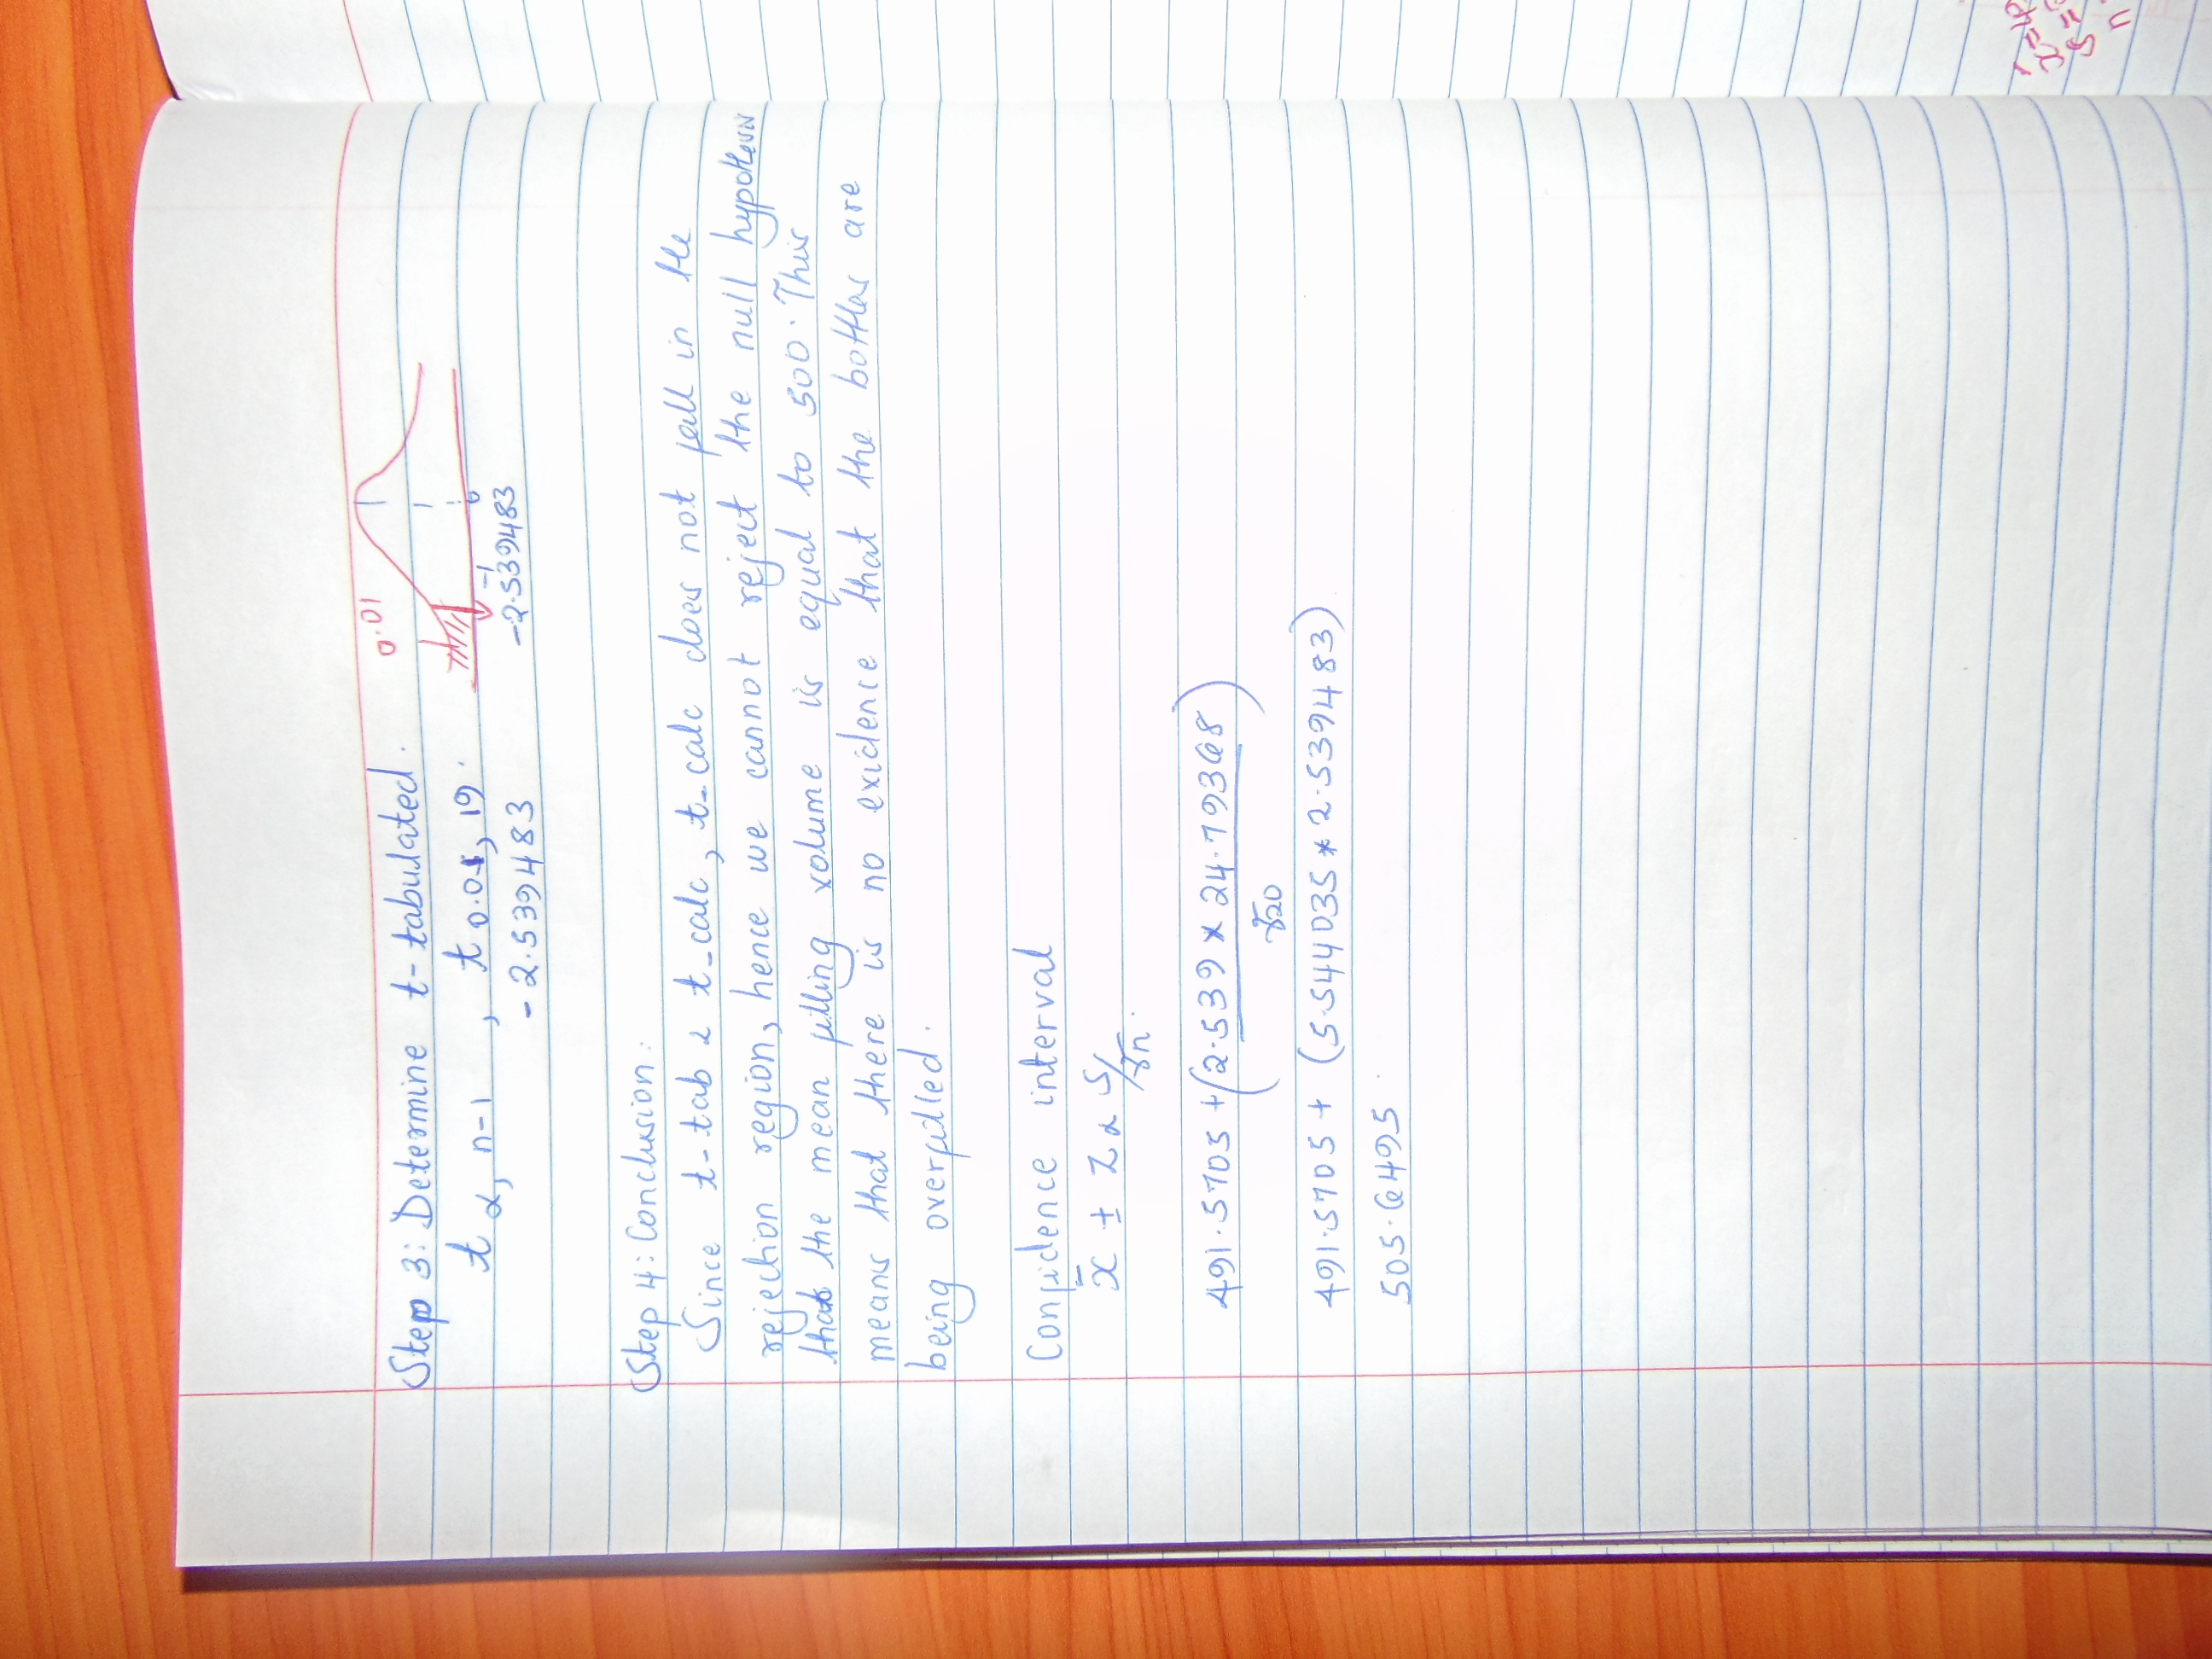 Step 3: Determine t-tabulated.
0.01
t α, n-1 , t 0.01, 19.
-2.539483
0
-1
-2.539483
Step 4: Conclusion:
Since t-tab < t-calc, t-calc does not fall in the
rejection region, hence we cannot reject the null hypothesis
that the mean filling volume is equal to 500. This
means that there is no evidence that the bottles are
being overfilled.
Confidence interval
x̄ ± Z α S/√n.
491.5705 + (2.539 * 24.79368)
√20
491.5705 + (5.544035 * 2.539483)
505.6495
x̄ = 4
S =
n